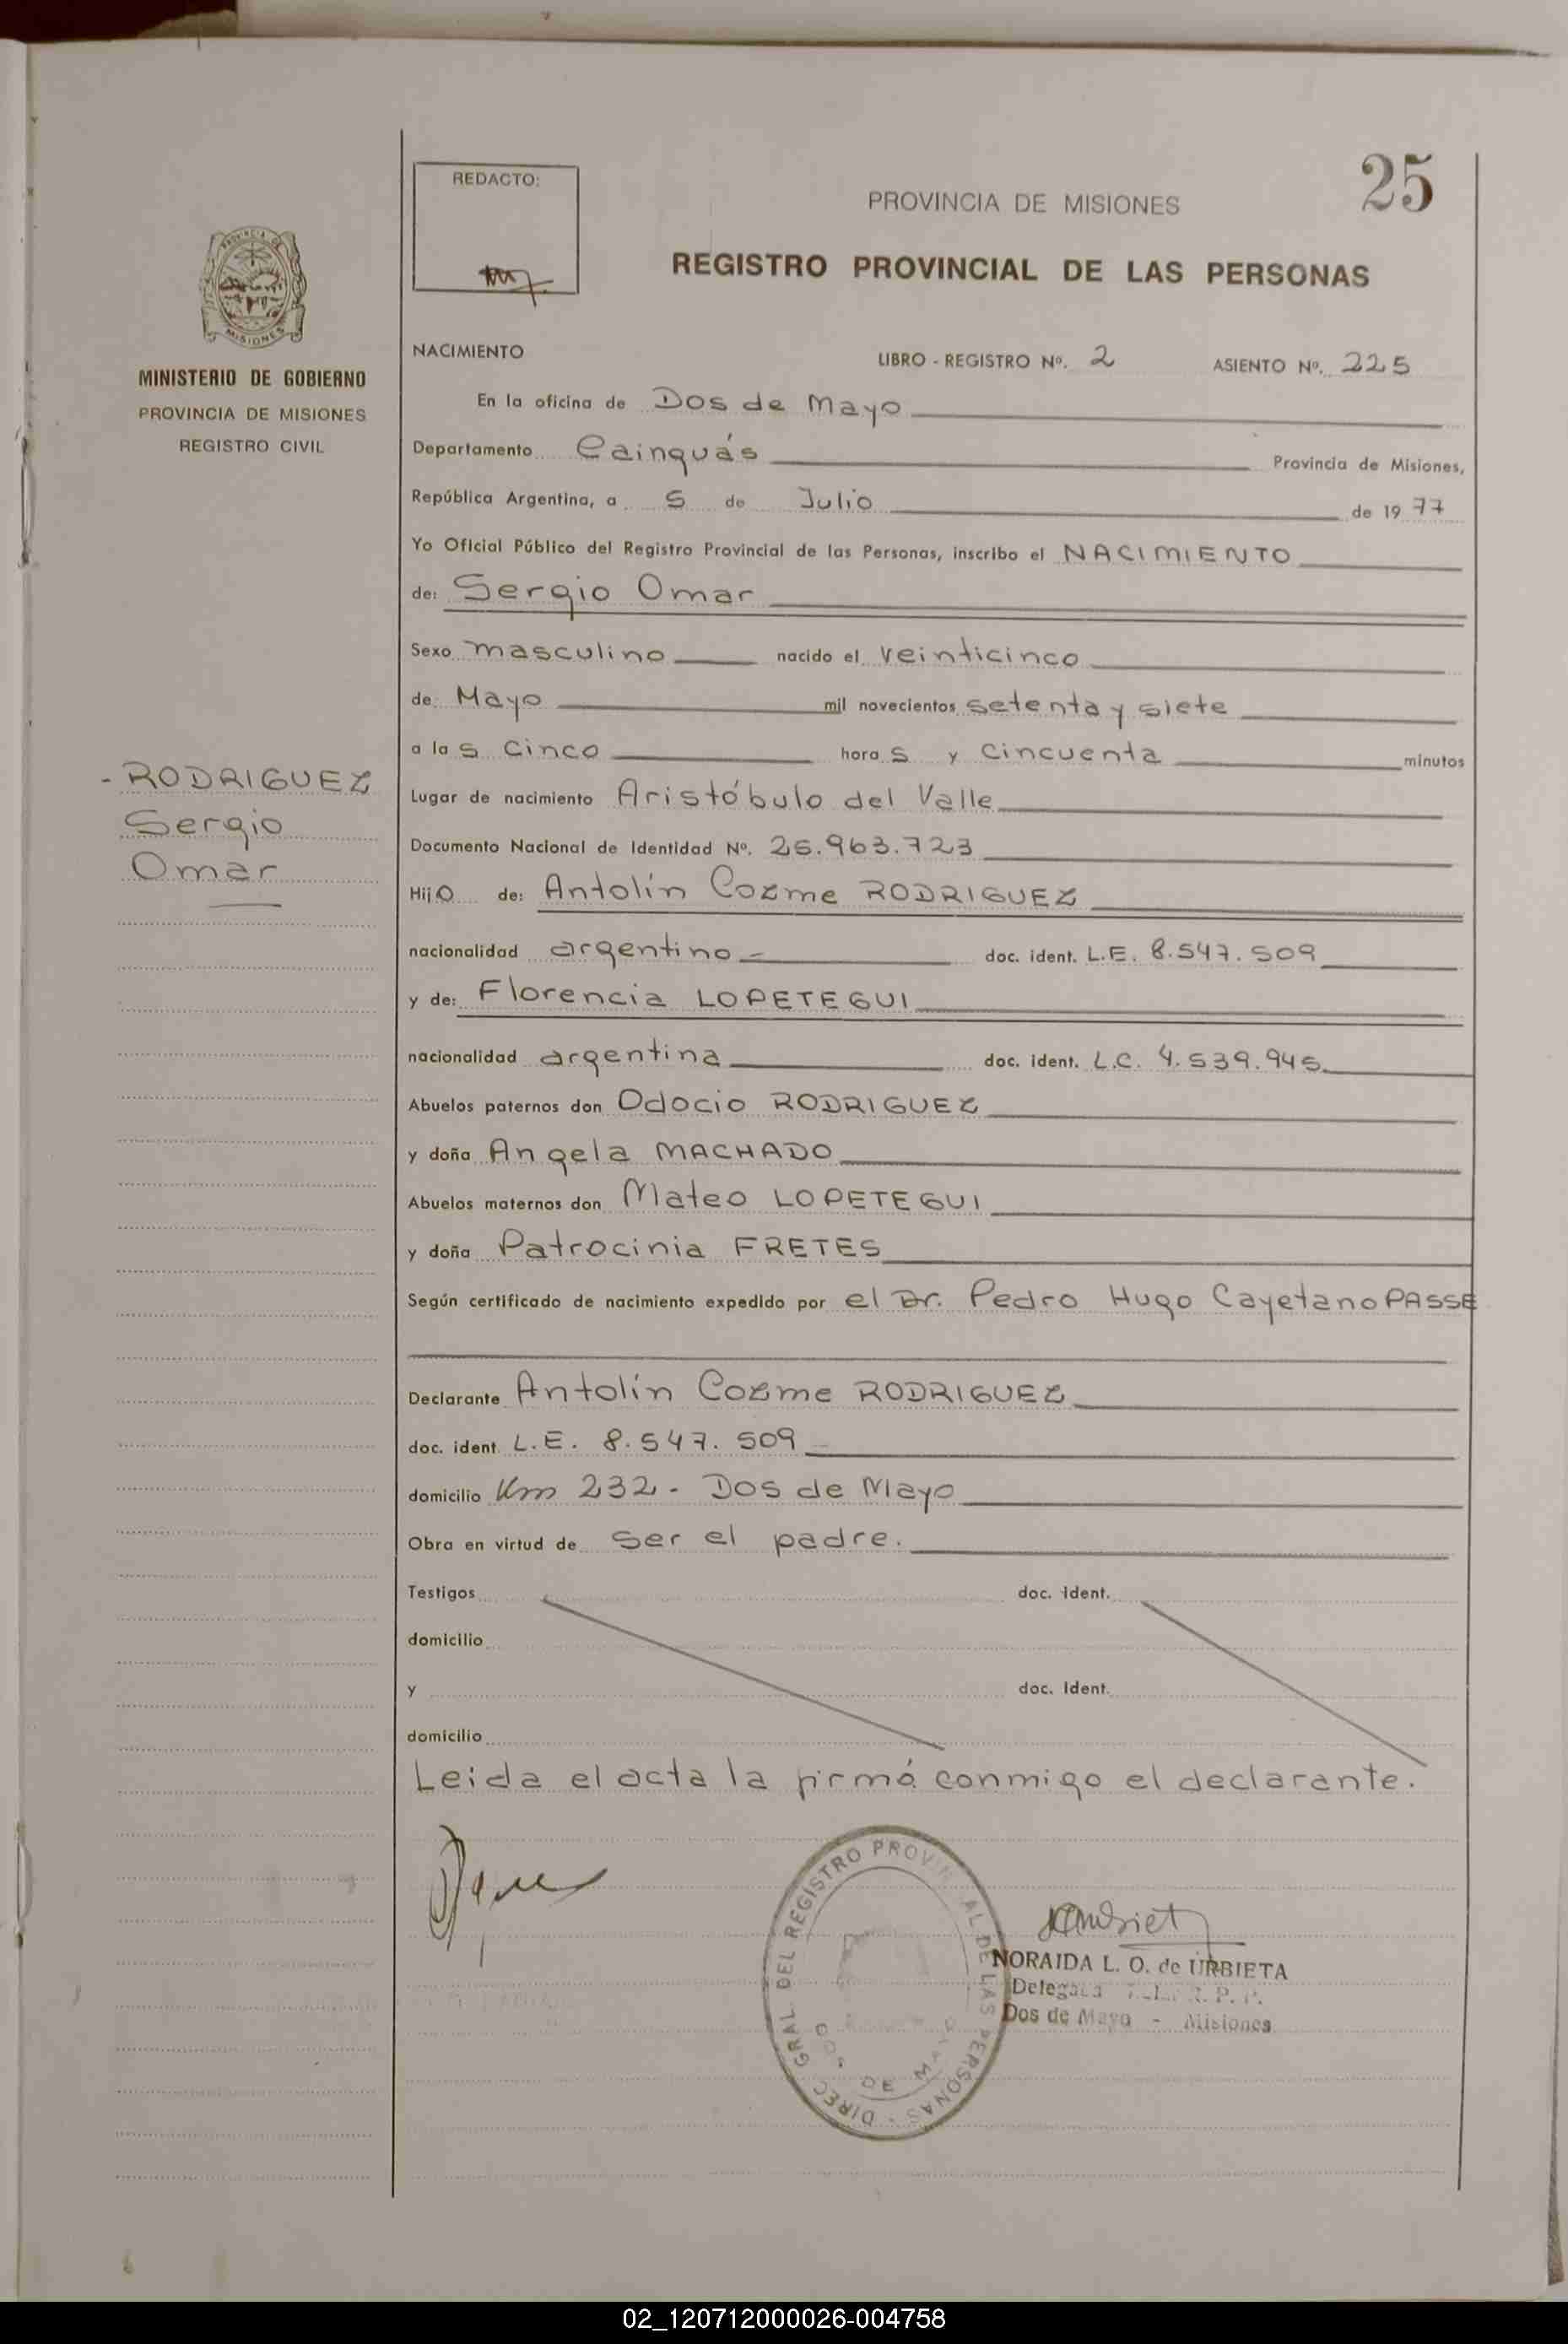 25
REDACTO:
PROVINCIA DE MISIONES
REGISTRO PROVINCIAL DE LAS PERSONAS
PROVINCIA DE
MISIONES
MINISTERIO DE GOBIERNO
PROVINCIA DE MISIONES
REGISTRO CIVIL
NACIMIENTO LIBRO - REGISTRO Nº. 2 ASIENTO Nº. 225
En la oficina de Dos de Mayo
Departamento Cainguás Provincia de Misiones,
República Argentina, a 5 de Julio de 1977
Yo Oficial Público del Registro Provincial de las Personas, inscribo el NACIMIENTO
de: Sergio Omar
Sexo masculino nacido el veinticinco
de: Mayo mil novecientos setenta y siete
a las cinco horas y cincuenta minutos
- RODRIGUEZ
Sergio
Omar
Lugar de nacimiento Aristóbulo del Valle
Documento Nacional de Identidad Nº. 25.963.723
Hijo de: Antolín Cozme RODRIGUEZ
nacionalidad argentino - doc. ident. L.E. 8.547.509
y de: Florencia LOPETEGUI
nacionalidad argentina doc. ident. L.C. 4.539.945
Abuelos paternos don Odocio RODRIGUEZ
y doña Angela MACHADO
Abuelos maternos don Mateo LOPETEGUI
y doña Patrocinia FRETES
Según certificado de nacimiento expedido por el Dr. Pedro Hugo Cayetano PASSE
Declarante Antolín Cozme RODRIGUEZ
doc. ident. L.E. 8.547.509
domicilio Km 232 - Dos de Mayo
Obra en virtud de ser el padre.
Testigos doc. ident.
domicilio
y doc. Ident.
domicilio
Leida el acta la firmó conmigo el declarante.
DIREC. GRAL. DEL REGISTRO PROVINCIAL DE LAS PERSONAS
DOS DE MAYO
NORAIDA L. O. de URBIETA
Delegada R. P. P.
Dos de Mayo - Misiones
02_120712000026-004758